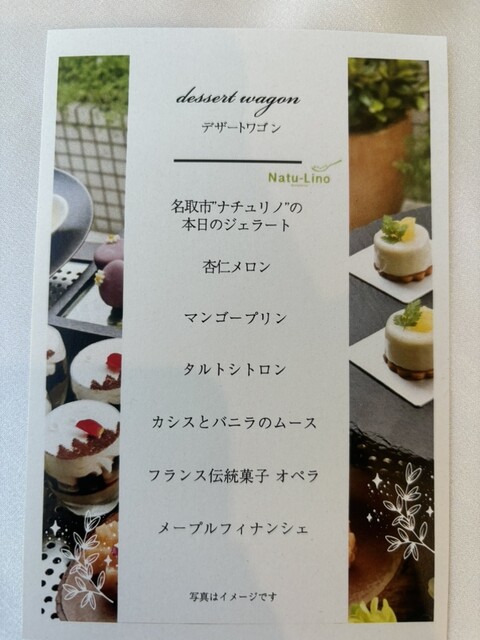 dessert wagon
デザートワゴン
Natu-Lino
名取市"ナチュリノ"の
本日のジェラート
杏仁メロン
マンゴープリン
タルトシトロン
カシスとバニラのムース
フランス伝統菓子 オペラ
メープルフィナンシェ
写真はイメージです